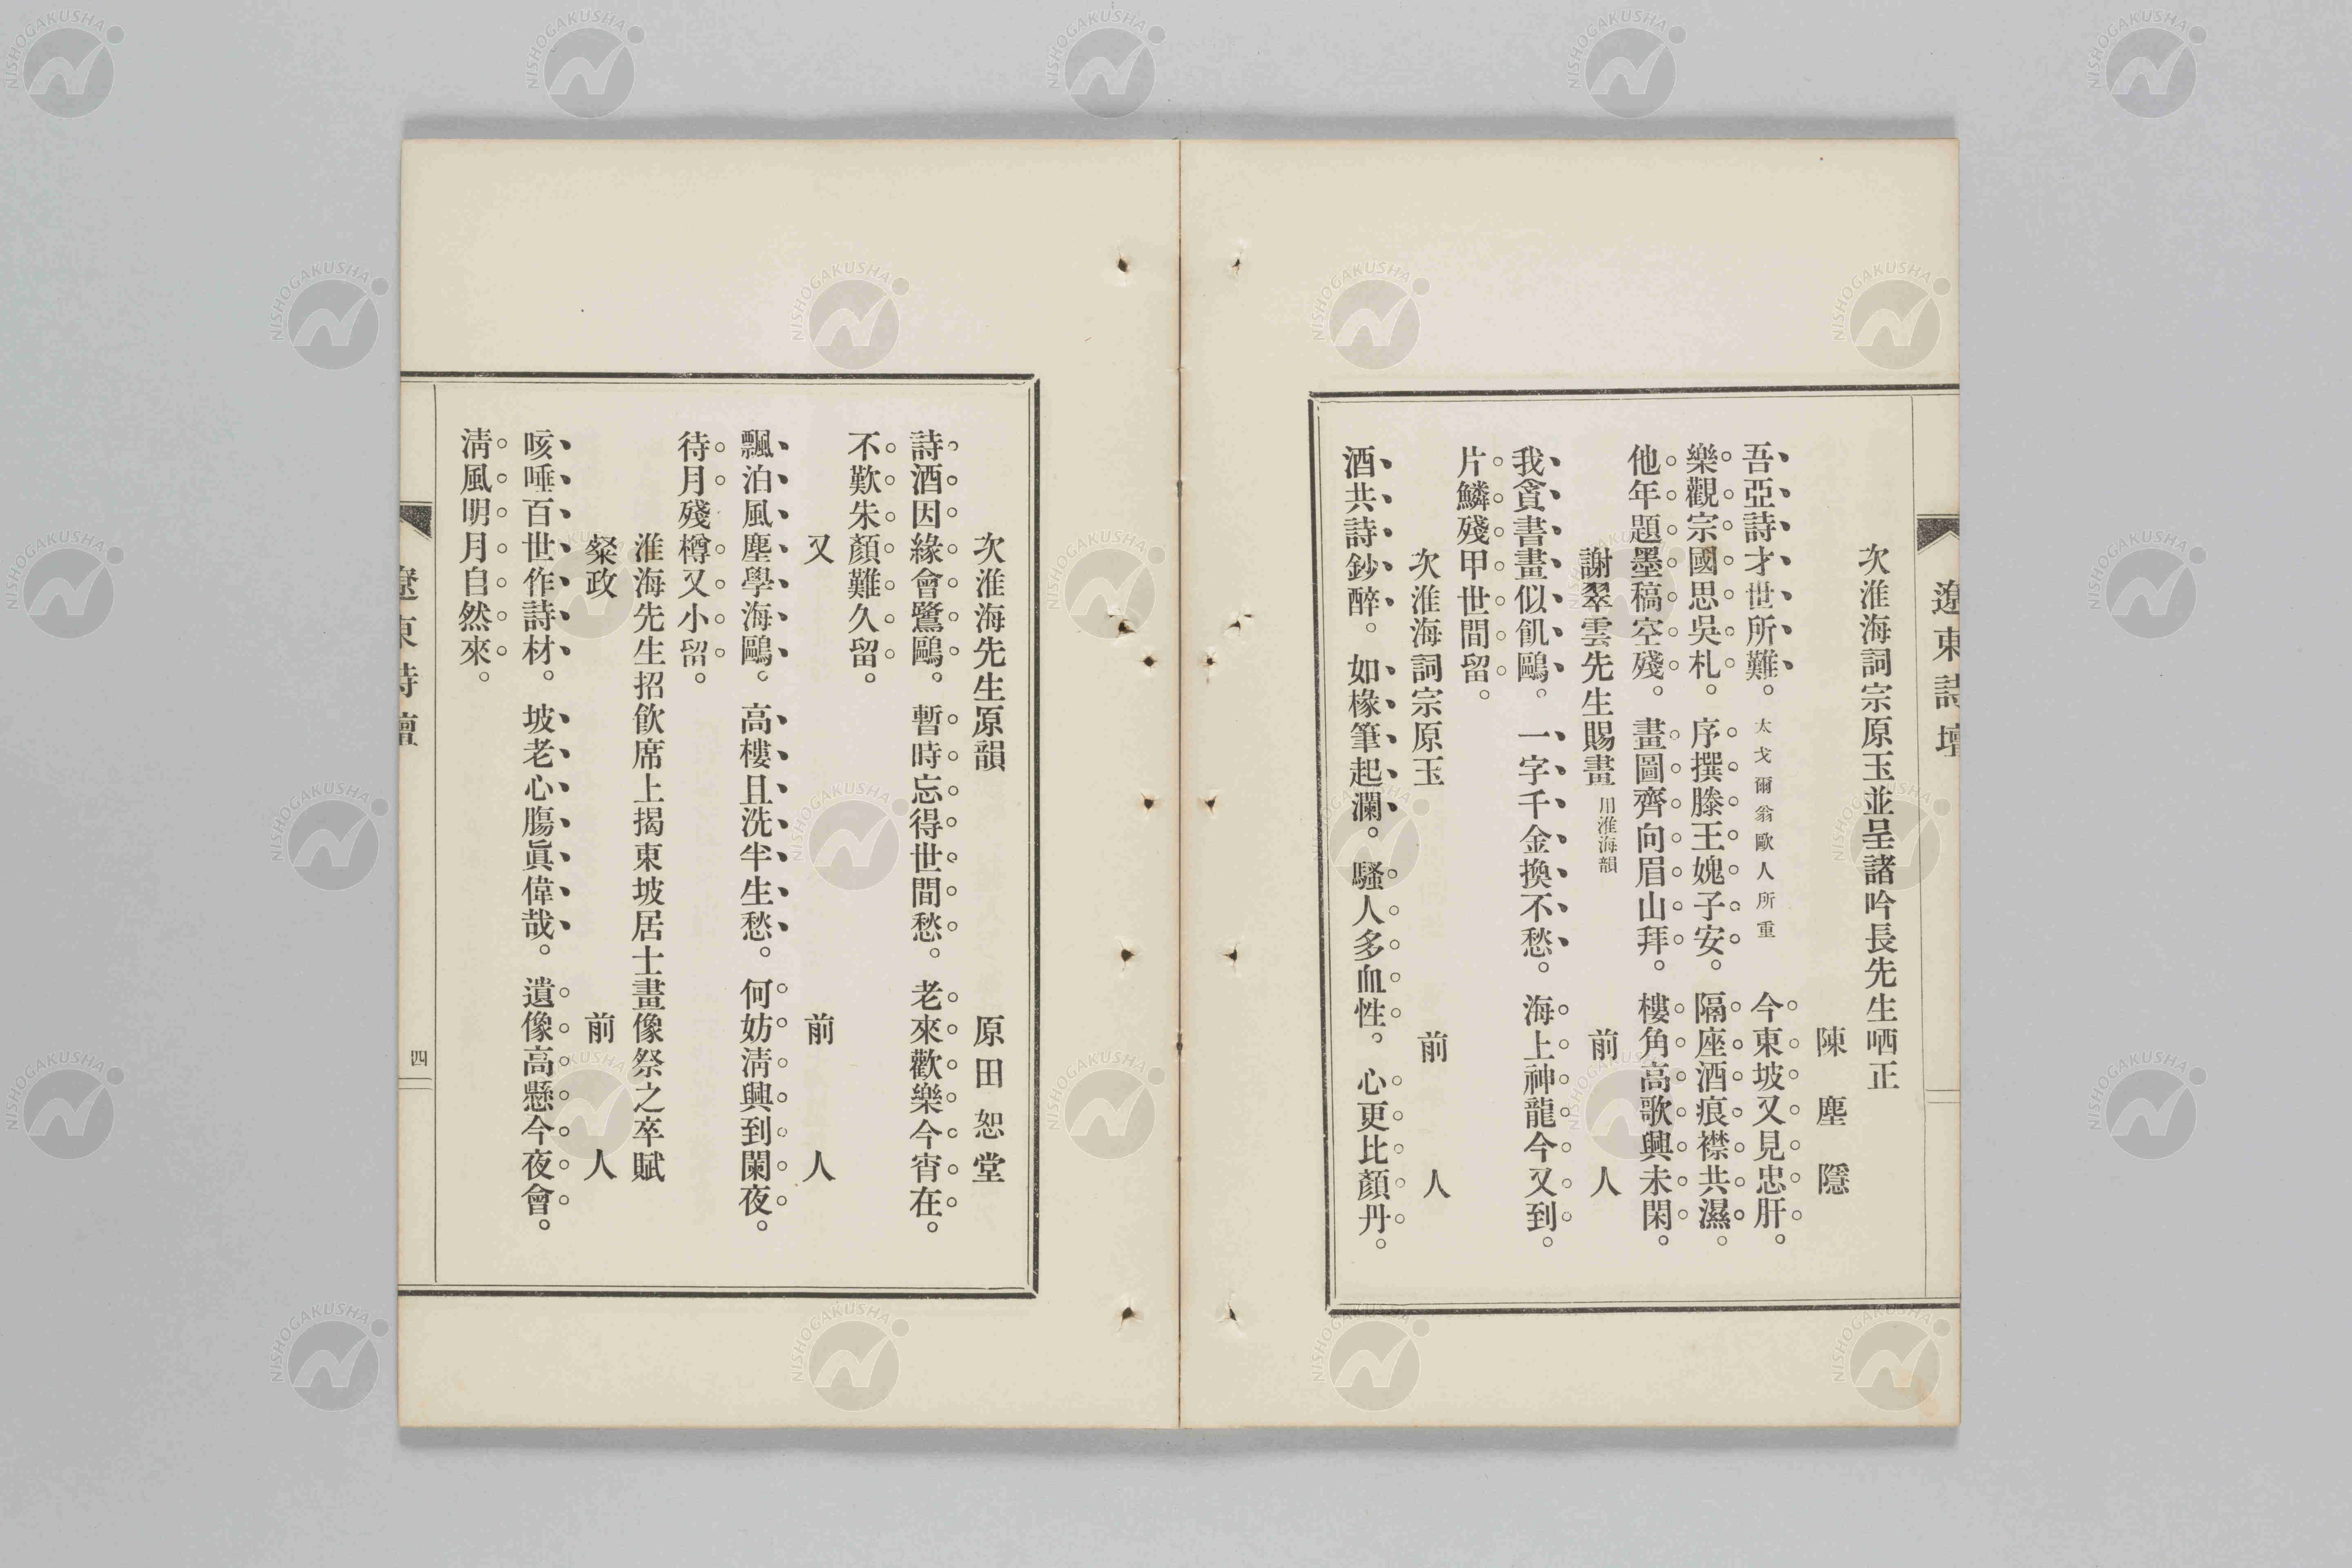 遼東詩壇
次淮海詞宗原玉並呈諸吟長先生哂正
陳塵隱
吾亞詩才世所難。太戈爾翁歐人所重 今東坡又見忠肝。
樂觀宗國思吳札。序撰滕王媿子安。隔座酒痕襟共濕。
他年題墨稿空殘。畫圖齊向眉山拜。樓角高歌興未闌。
謝翠雲先生賜畫 用淮海韻 前人
我貪書畫似飢鷗。一字千金換不愁。海上神龍今又到。
片鱗殘甲世間留。
次淮海詞宗原玉 前人
酒共詩鈔醉。如椽筆起瀾。騷人多血性。心更比顏丹。
次淮海先生原韻 原田恕堂
詩酒因緣會鷺鷗。暫時忘得世間愁。老來歡樂今宵在。
不歎朱顏難久留。
又 前人
飄泊風塵學海鷗。高樓且洗半生愁。何妨淸興到闌夜。
待月殘樽又小留。
淮海先生招飮席上揭東坡居士畫像祭之卒賦
粲政 前人
咳唾百世作詩材。坡老心膓眞偉哉。遺像高懸今夜會。
淸風明月自然來。
遼東詩壇
四
NISHOGAKUSHA